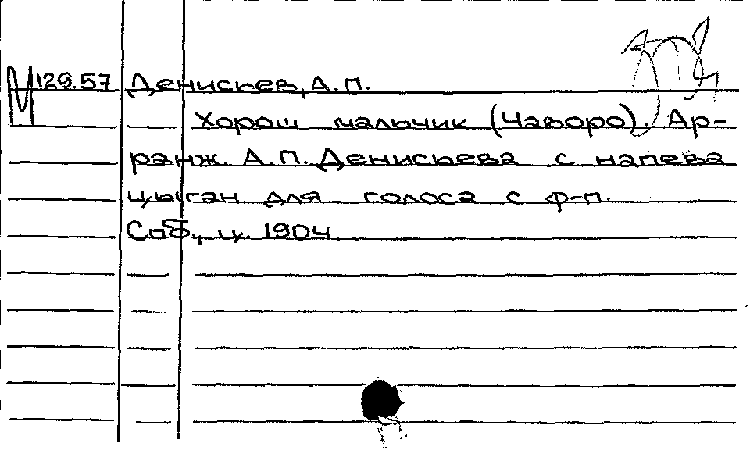 М129.57 Денисьев, А.П.
Хорош мальчик (Чаворо). Ар-
ранж. А.П. Денисьева с напева
цыган для голоса с ф-п.
Спб., ц. 1904